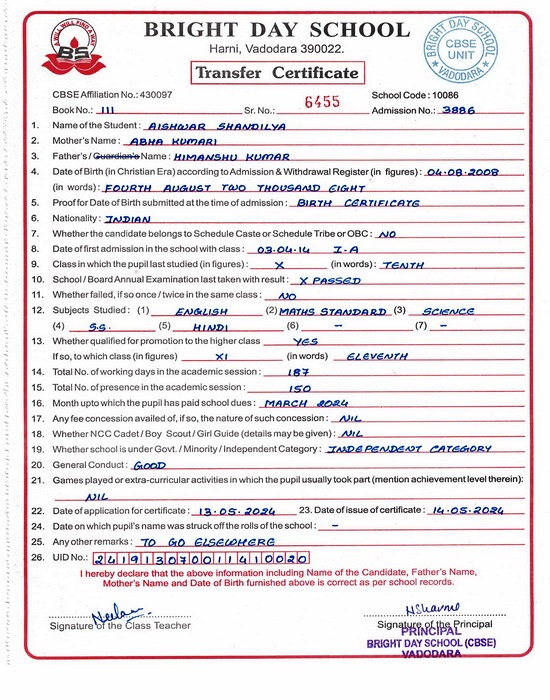 A WILL WILL FIND A WAY
BS
BRIGHT DAY SCHOOL
Harni, Vadodara 390022.
Transfer Certificate
BRIGHT DAY SCHOOL
CBSE
UNIT
VADODARA
CBSE Affiliation No.: 430097 School Code : 10086
Book No.: III Sr. No.: 6455 Admission No.: 3886
1. Name of the Student : AISHWAR SHANDILYA
2. Mother's Name : ABHA KUMARI
3. Father's / Guardian's Name : HIMANSHU KUMAR
4. Date of Birth (in Christian Era) according to Admission & Withdrawal Register (in figures) : 04.08.2008
(in words) : FOURTH AUGUST TWO THOUSAND EIGHT
5. Proof for Date of Birth submitted at the time of admission : BIRTH CERTIFICATE
6. Nationality : INDIAN
7. Whether the candidate belongs to Schedule Caste or Schedule Tribe or OBC : NO
8. Date of first admission in the school with class : 03.04.14 I-A
9. Class in which the pupil last studied (in figures) : X (in words) : TENTH
10. School / Board Annual Examination last taken with result : X PASSED
11. Whether failed, if so once / twice in the same class : NO
12. Subjects Studied : (1) ENGLISH (2) MATHS STANDARD (3) SCIENCE
(4) S.S. (5) HINDI (6) – (7) –
13. Whether qualified for promotion to the higher class YES
If so, to which class (in figures) XI (in words) ELEVENTH
14. Total No. of working days in the academic session : 187
15. Total No. of presence in the academic session : 150
16. Month upto which the pupil has paid school dues : MARCH 2024
17. Any fee concession availed of, if so, the nature of such concession : NIL
18. Whether NCC Cadet / Boy Scout / Girl Guide (details may be given) : NIL
19. Whether school is under Govt. / Minority / Independent Category : INDEPENDENT CATEGORY
20. General Conduct : GOOD
21. Games played or extra-curricular activities in which the pupil usually took part (mention achievement level therein):
NIL
22. Date of application for certificate : 13.05.2024 23. Date of issue of certificate : 14.05.2024
24. Date on which pupil's name was struck off the rolls of the school : –
25. Any other remarks : TO GO ELSEWHERE
26. UID No.: 241913070011410020
I hereby declare that the above information including Name of the Candidate, Father's Name,
Mother's Name and Date of Birth furnished above is correct as per school records.
Signature of the Class Teacher Signature of the Principal
PRINCIPAL
BRIGHT DAY SCHOOL (CBSE)
VADODARA